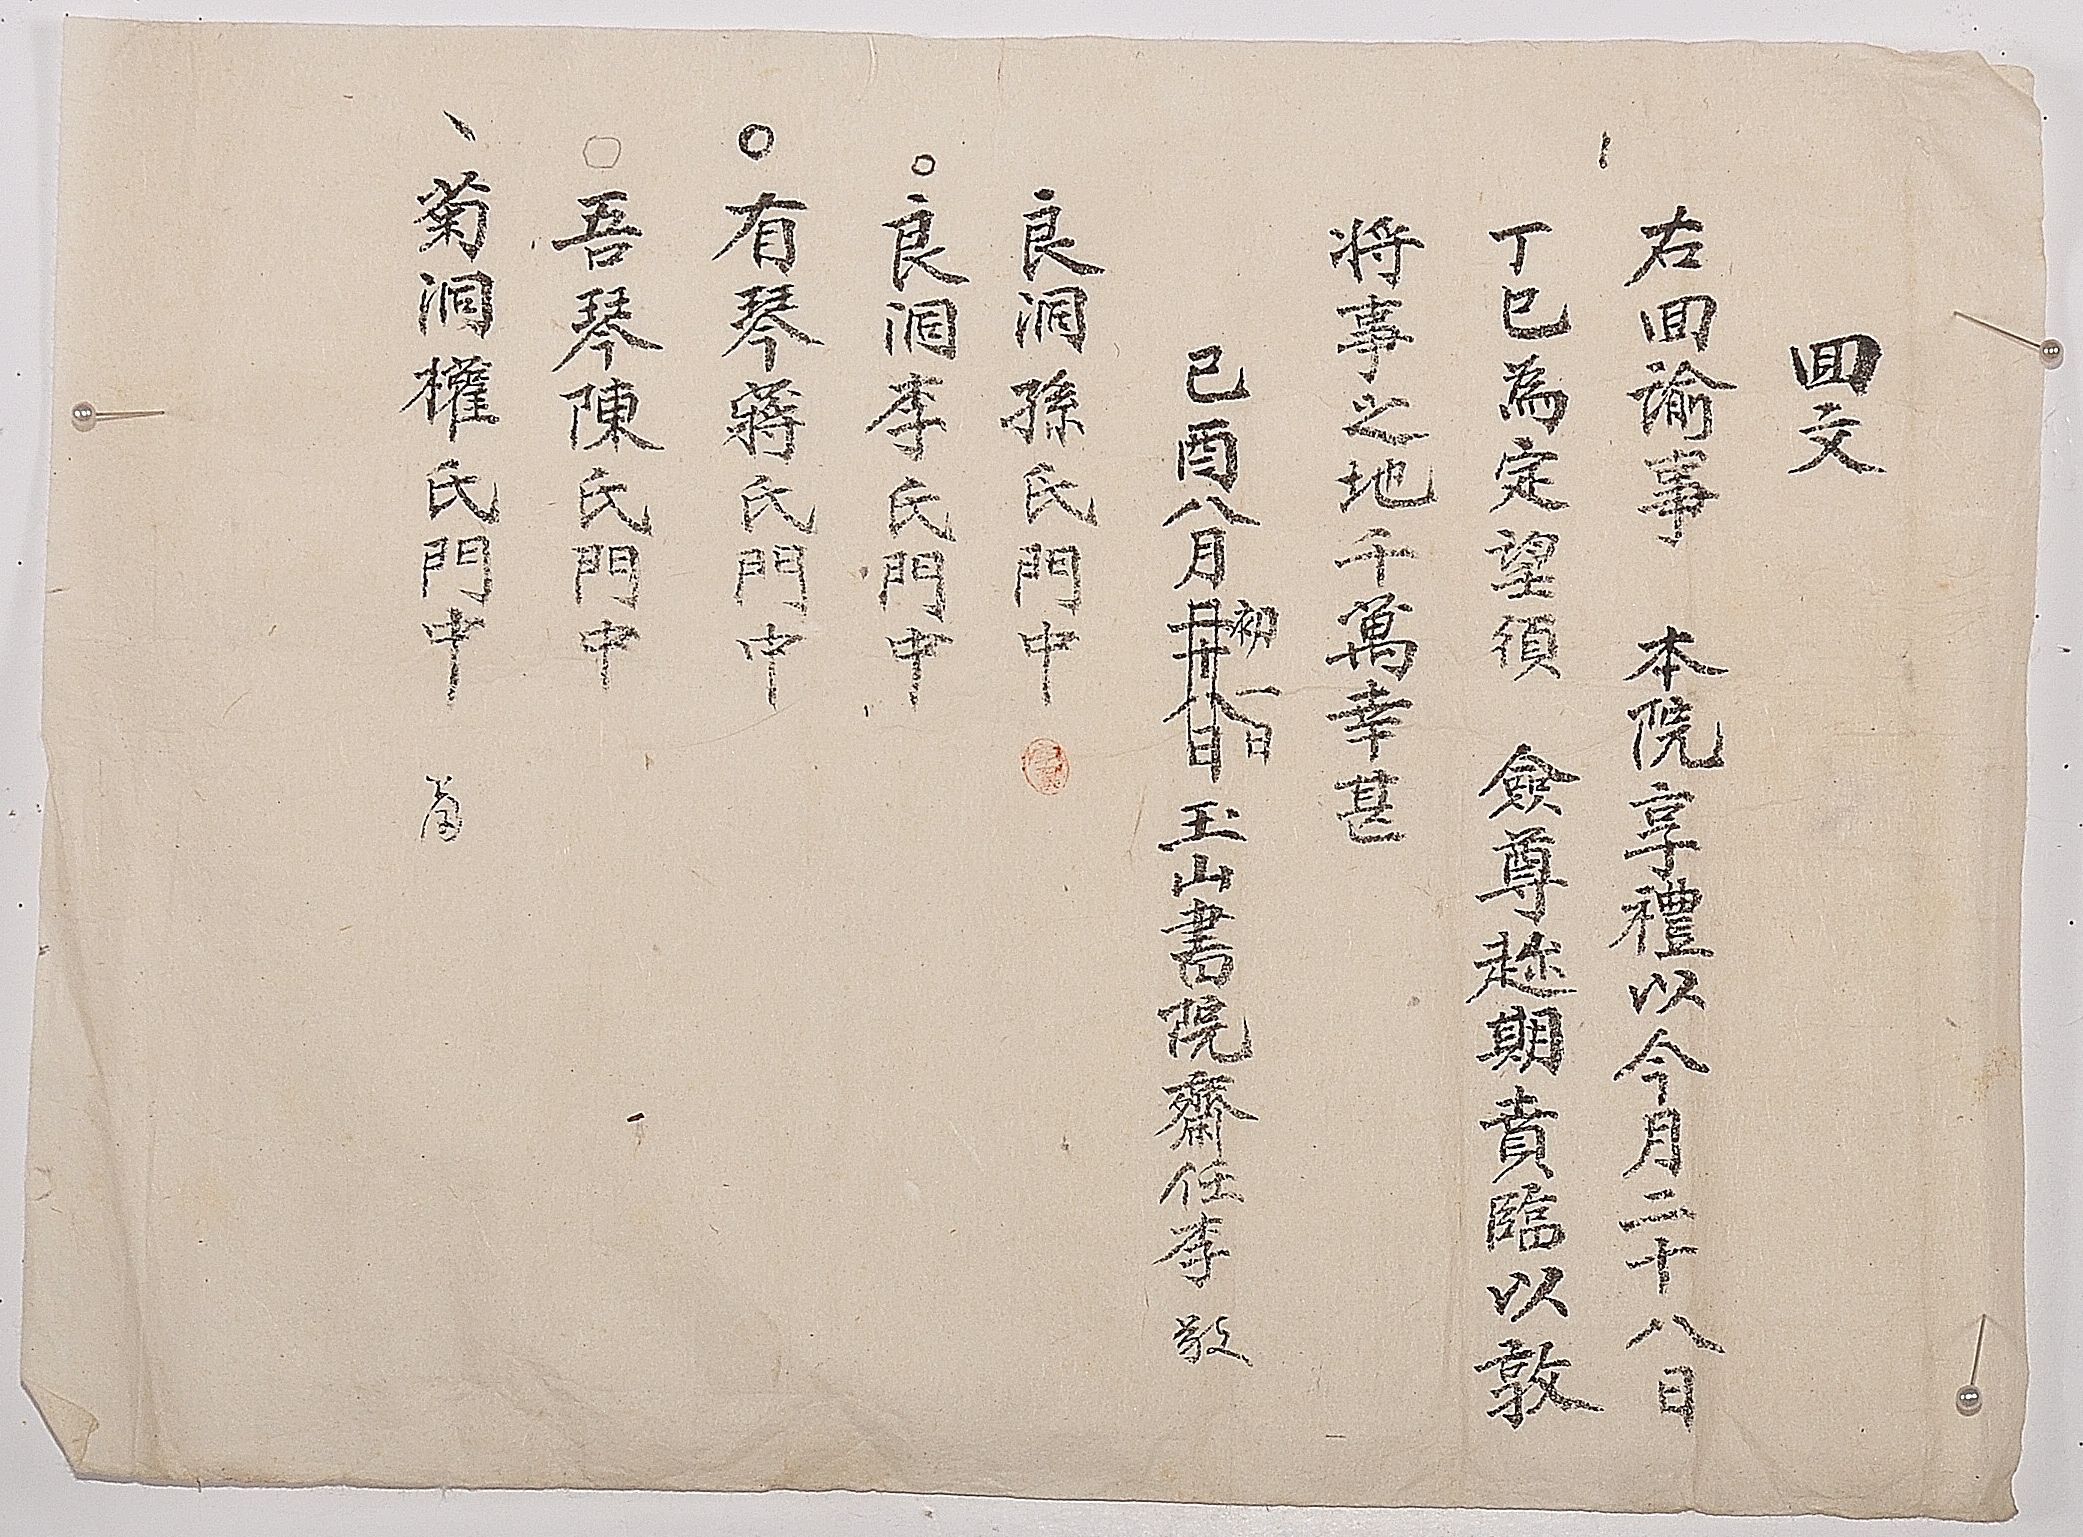 回文
右回諭事 本院享禮以今月二十八日
丁巳為定望須 僉尊趂期賁臨以敦
將事之地千萬幸甚
己酉八月初一日 玉山書院齋任李 敬
良洞孫氏門中
良洞李氏門中
有琴蔣氏門中
吾琴陳氏門中
菊洞權氏門中